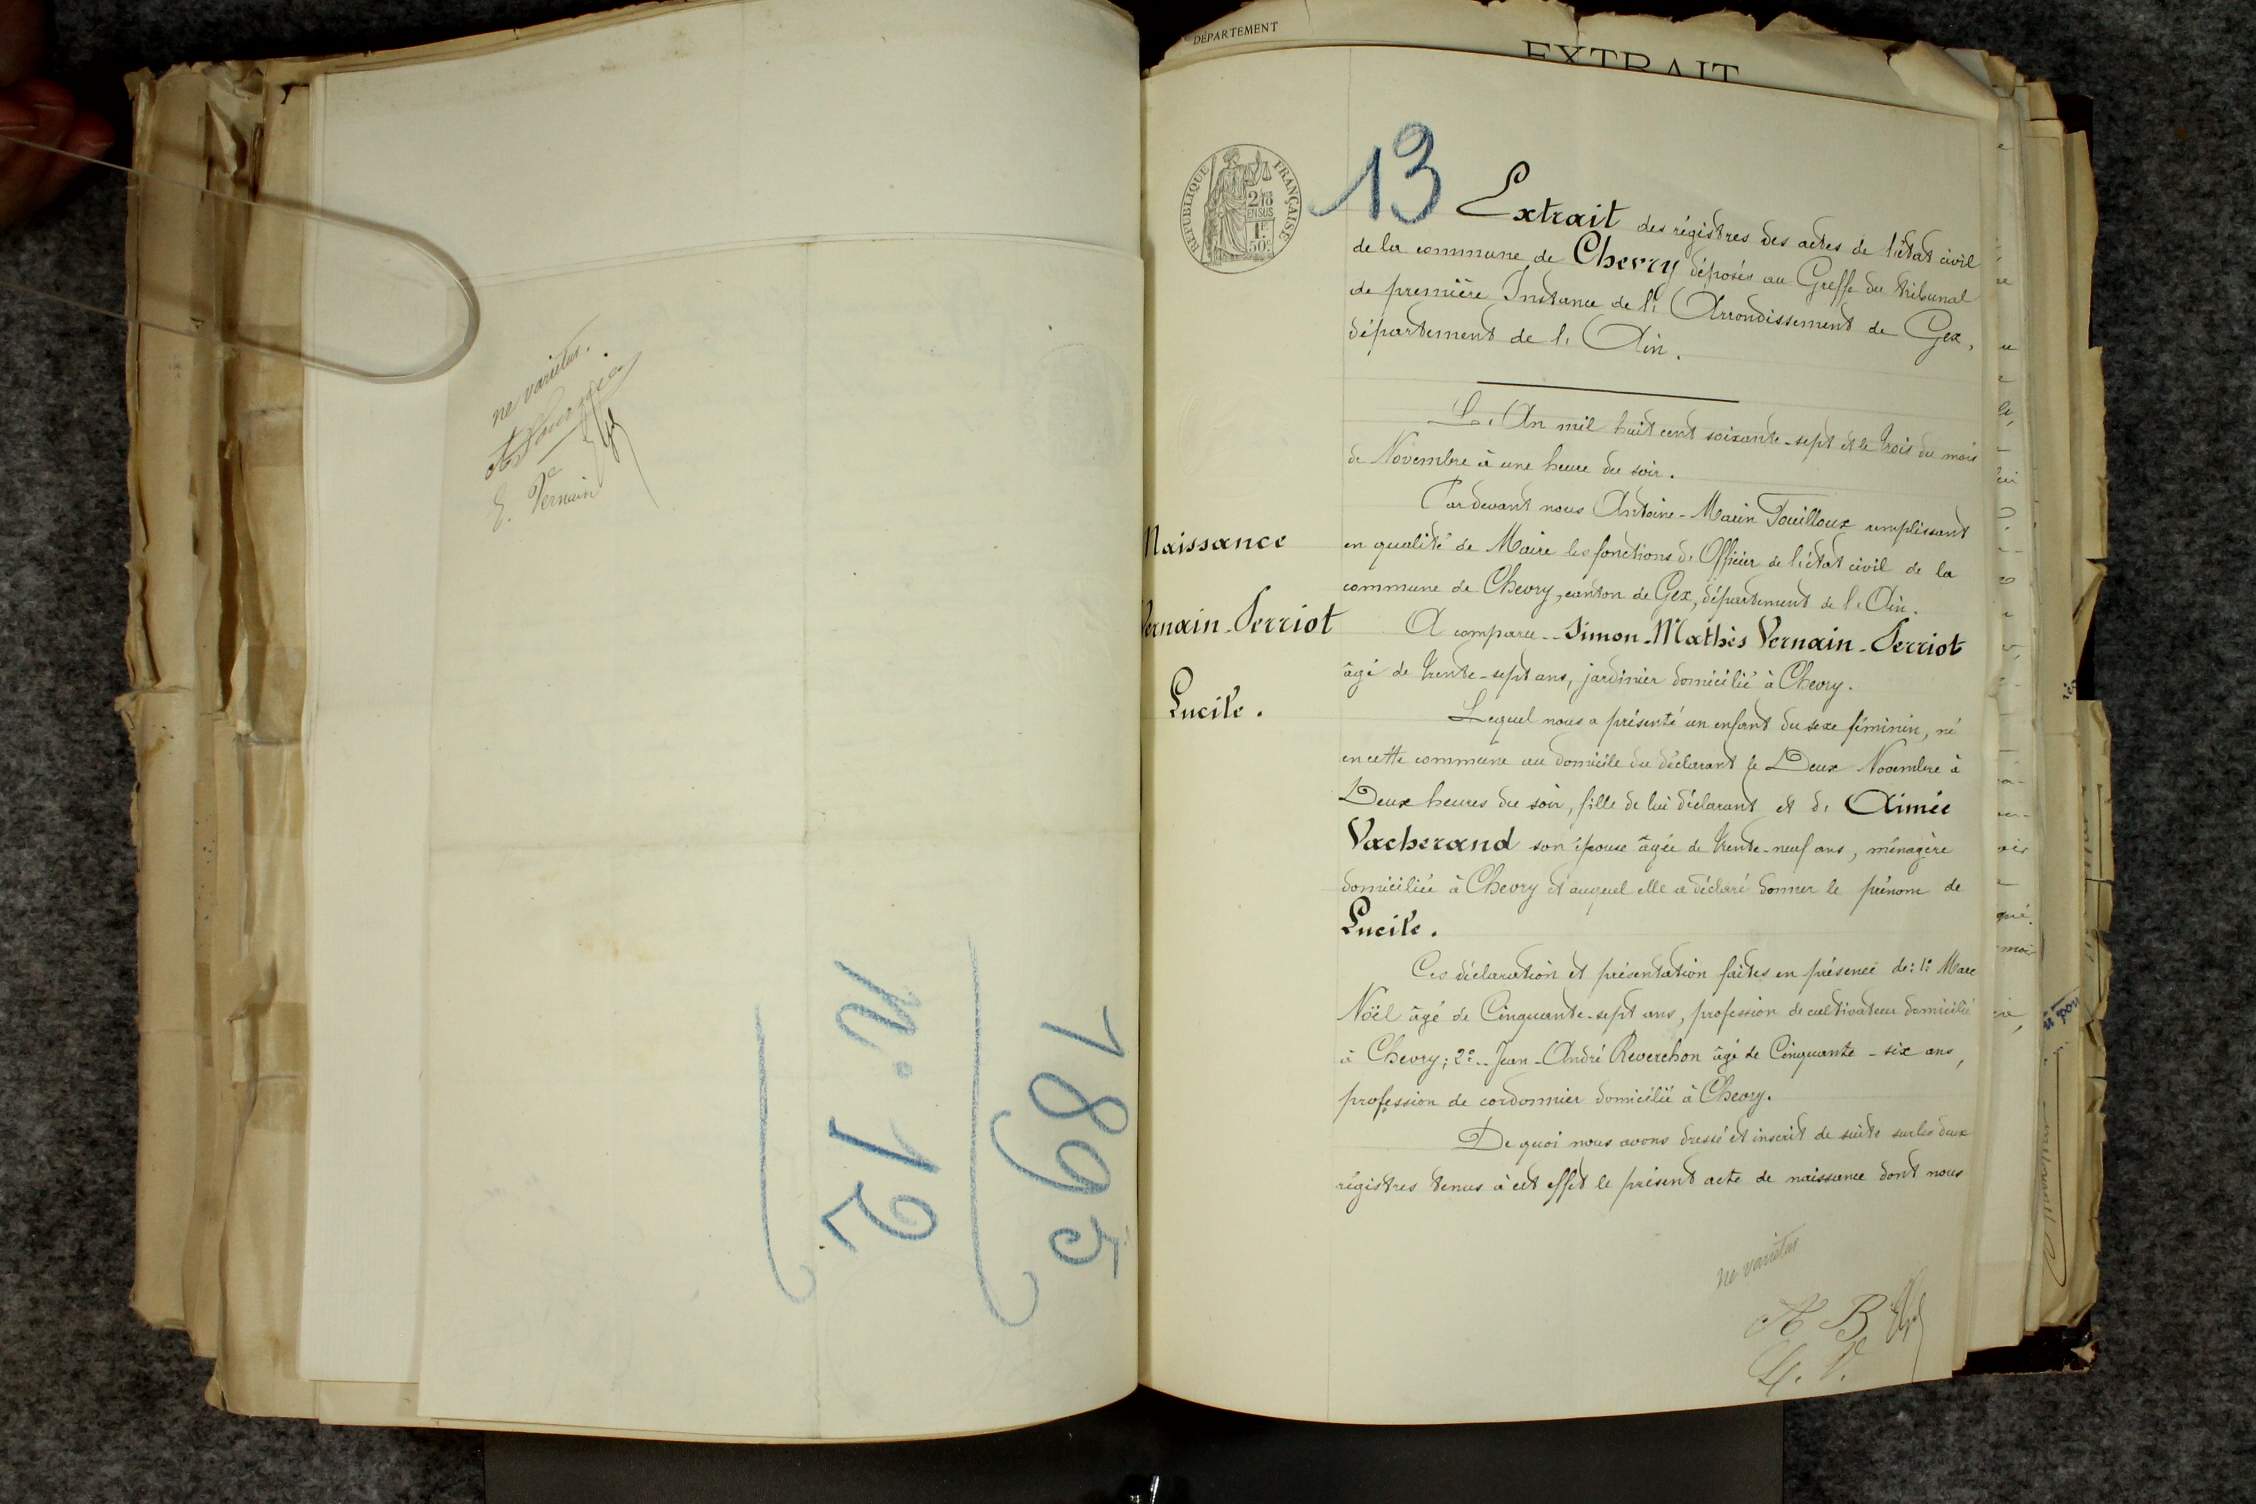 ne varietur.
E. Vernain
1895
N° 12
DÉPARTEMENT
EXTRAIT
RÉPUBLIQUE FRANÇAISE
2/10
EN SUS
1F.
50c
13
Extrait des régistres des actes de l'état civil
de la commune de Chevry déposés au Greffe du tribunal
de première Instance de l'Arrondissement de Gex,
département de l'Ain.
L'An mil huit cent soixante-sept et le trois du mois
de Novembre à une heure du soir.
Par devant nous Antoine-Marin Touilloux remplissant
en qualité de Maire les fonctions d'Officier de l'état civil de la
commune de Chevry, canton de Gex, département de l'Ain.
A comparu -- Simon-Mathès Vernain-Perriot
âgé de trente-sept ans, jardinier domicilié à Chevry.
Lequel nous a présenté un enfant du sexe féminin, né
en cette commune au domicile du déclarant le Deux Novembre à
Deux heures du soir, fille de lui déclarant et d'Aimée
Vacherand son épouse âgée de trente-neuf ans, ménagère
domiciliée à Chevry et auquel elle a déclaré donner le prénom de
Lucile.
Ces déclaration et présentation faites en présence de: 1° Marc
Noël âgé de Cinquante-sept ans, profession de cultivateur domicilié
à Chevry; 2° -- Jean-André Reverchon âgé de Cinquante-six ans,
profession de cordonnier domicilié à Chevry.
De quoi nous avons dressé et inscrit de suite sur les deux
régistres tenus à cet effet le présent acte de naissance dont nous
Naissance
Vernain-Perriot
Lucile.
ne varietur